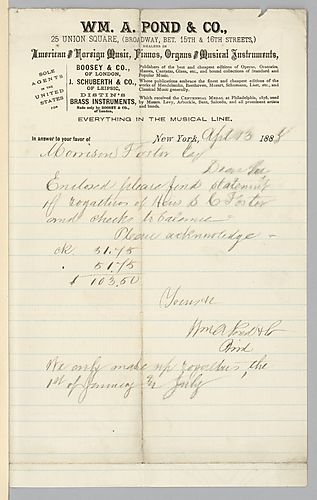 WM. A. POND & CO.,
25 UNION SQUARE, (BROADWAY, BET. 15TH & 16TH STREETS,)
DEALERS IN
American and Foreign Music, Pianos, Organs and Musical Instruments,
SOLE AGENTS IN THE UNITED STATES FOR
BOOSEY & CO.,
OF LONDON,
J. SCHUBERTH & CO.,
OF LEIPSIC,
DISTIN'S
BRASS INSTRUMENTS,
Made only by BOOSEY & CO.,
of London.
Publishers of the best and cheapest editions of Operas, Oratorios, Masses, Cantatas, Glees, etc., and bound collections of Standard and Popular Music.
Whose publications embrace the finest and cheapest editions of the works of Mendelssohn, Beethoven, Mozart, Schumann, Liszt, etc., and of Classical Music generally.
Which received the CENTENNIAL MEDAL at Philadelphia, 1876, used by Messrs. Levy, Arbuckle, Bent, Salcedo, and all prominent artists and bands.
EVERYTHING IN THE MUSICAL LINE.
In answer to your favor of
New York, Apl 13 188
Morrison Foster Esq
Dear Sir
Enclosed please find statement
of royalties of Heirs S C Foster
and checks to balance
Please acknowledge
ck 51.75
" 51 75
$ 103.50
Yours &c
Wm A Pond & Co
We only make up royalties, the
1st of January & July